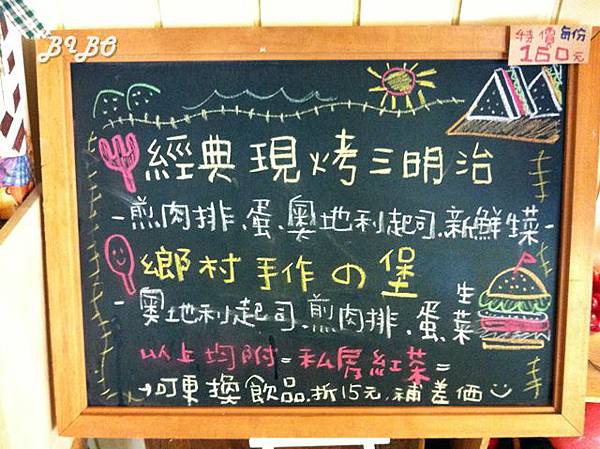 BIBO
特價每份
160元
經典現烤三明治
-煎肉排、蛋、奧地利起司、新鮮生菜-
鄉村手作の堡
-奧地利起司、煎肉排、蛋、生菜
以上均附=私房紅茶=
→可更換飲品,折15元,補差價